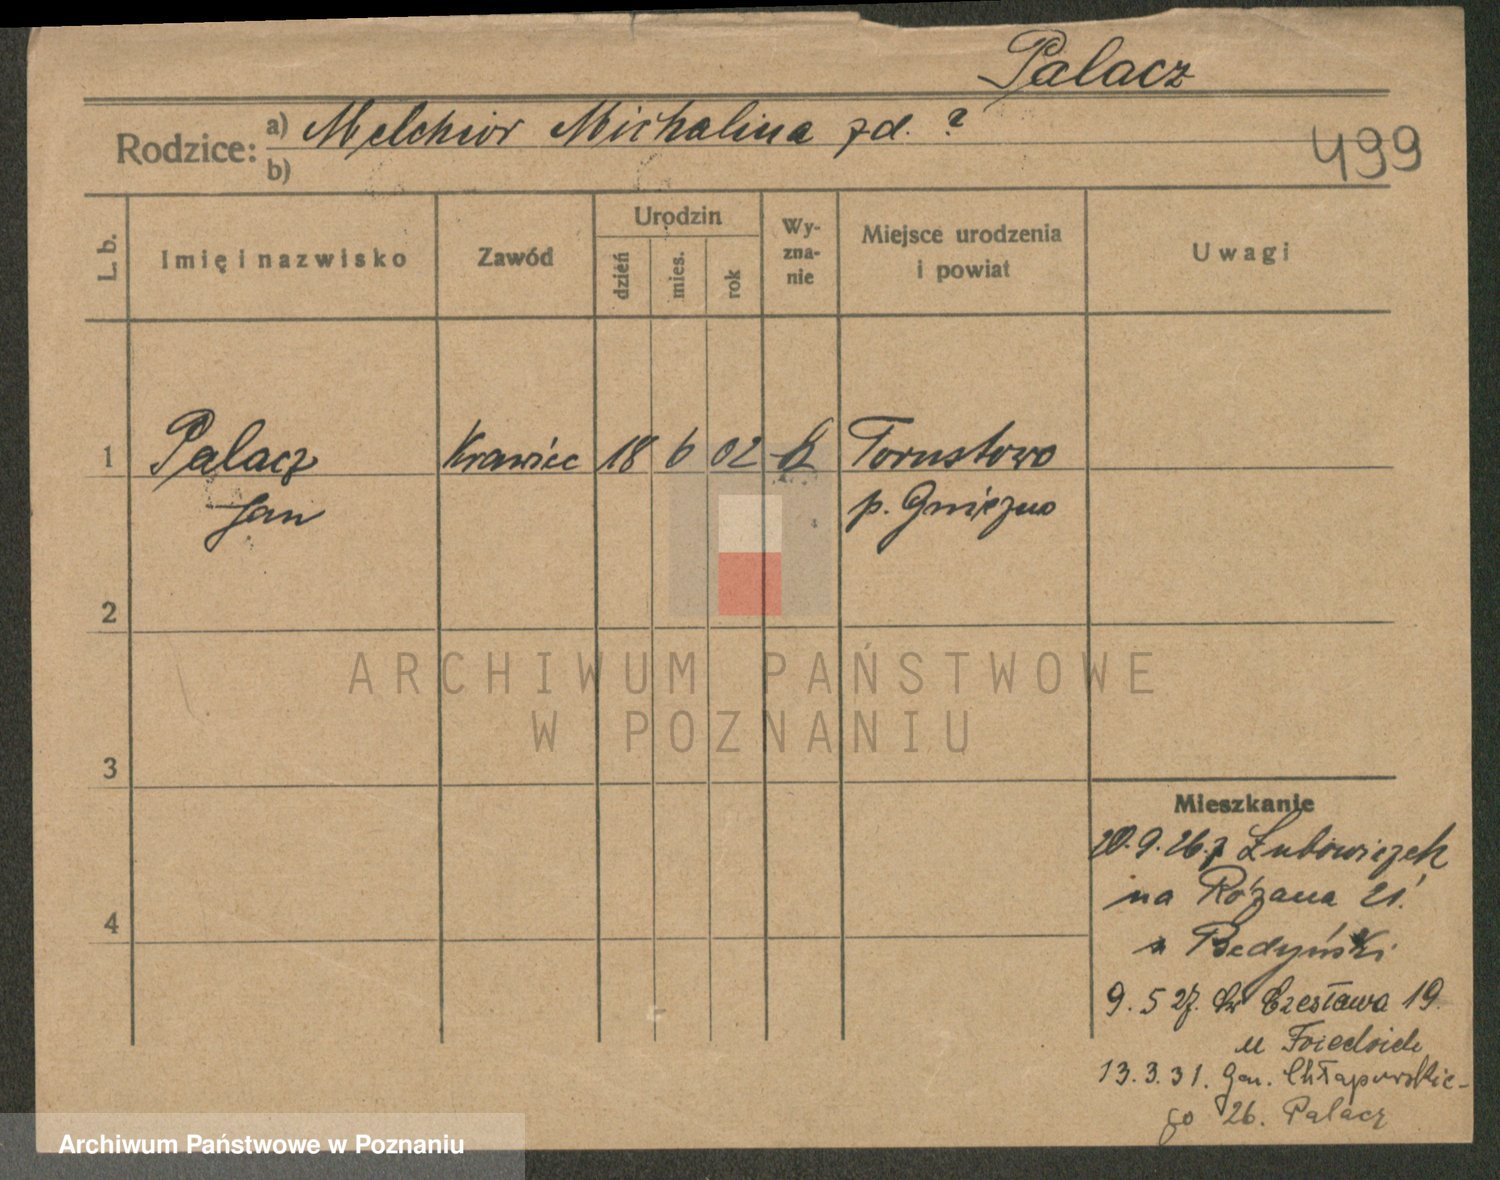 Palacz
Rodzice: a) Melchior Michalina zd. ?
b)
499
L. b.
Imię i nazwisko
Zawód
Urodzin
dzień
mies.
rok
Wy-
zna-
nie
Miejsce urodzenia
i powiat
Uwagi
1 Palacz Krawiec 18 6 02 k Tornstowo
Jan p. Gniezno
2
3
4
Mieszkanie
20.9.26. z Łubowiczek
na Różana 21.
Bedyński
9.5 27. Św Czesława 19.
u Friedrich
13.3.31. Gen. Chłapowskie-
go 26. Palacz
ARCHIWUM PAŃSTWOWE
W POZNANIU
Archiwum Państwowe w Poznaniu